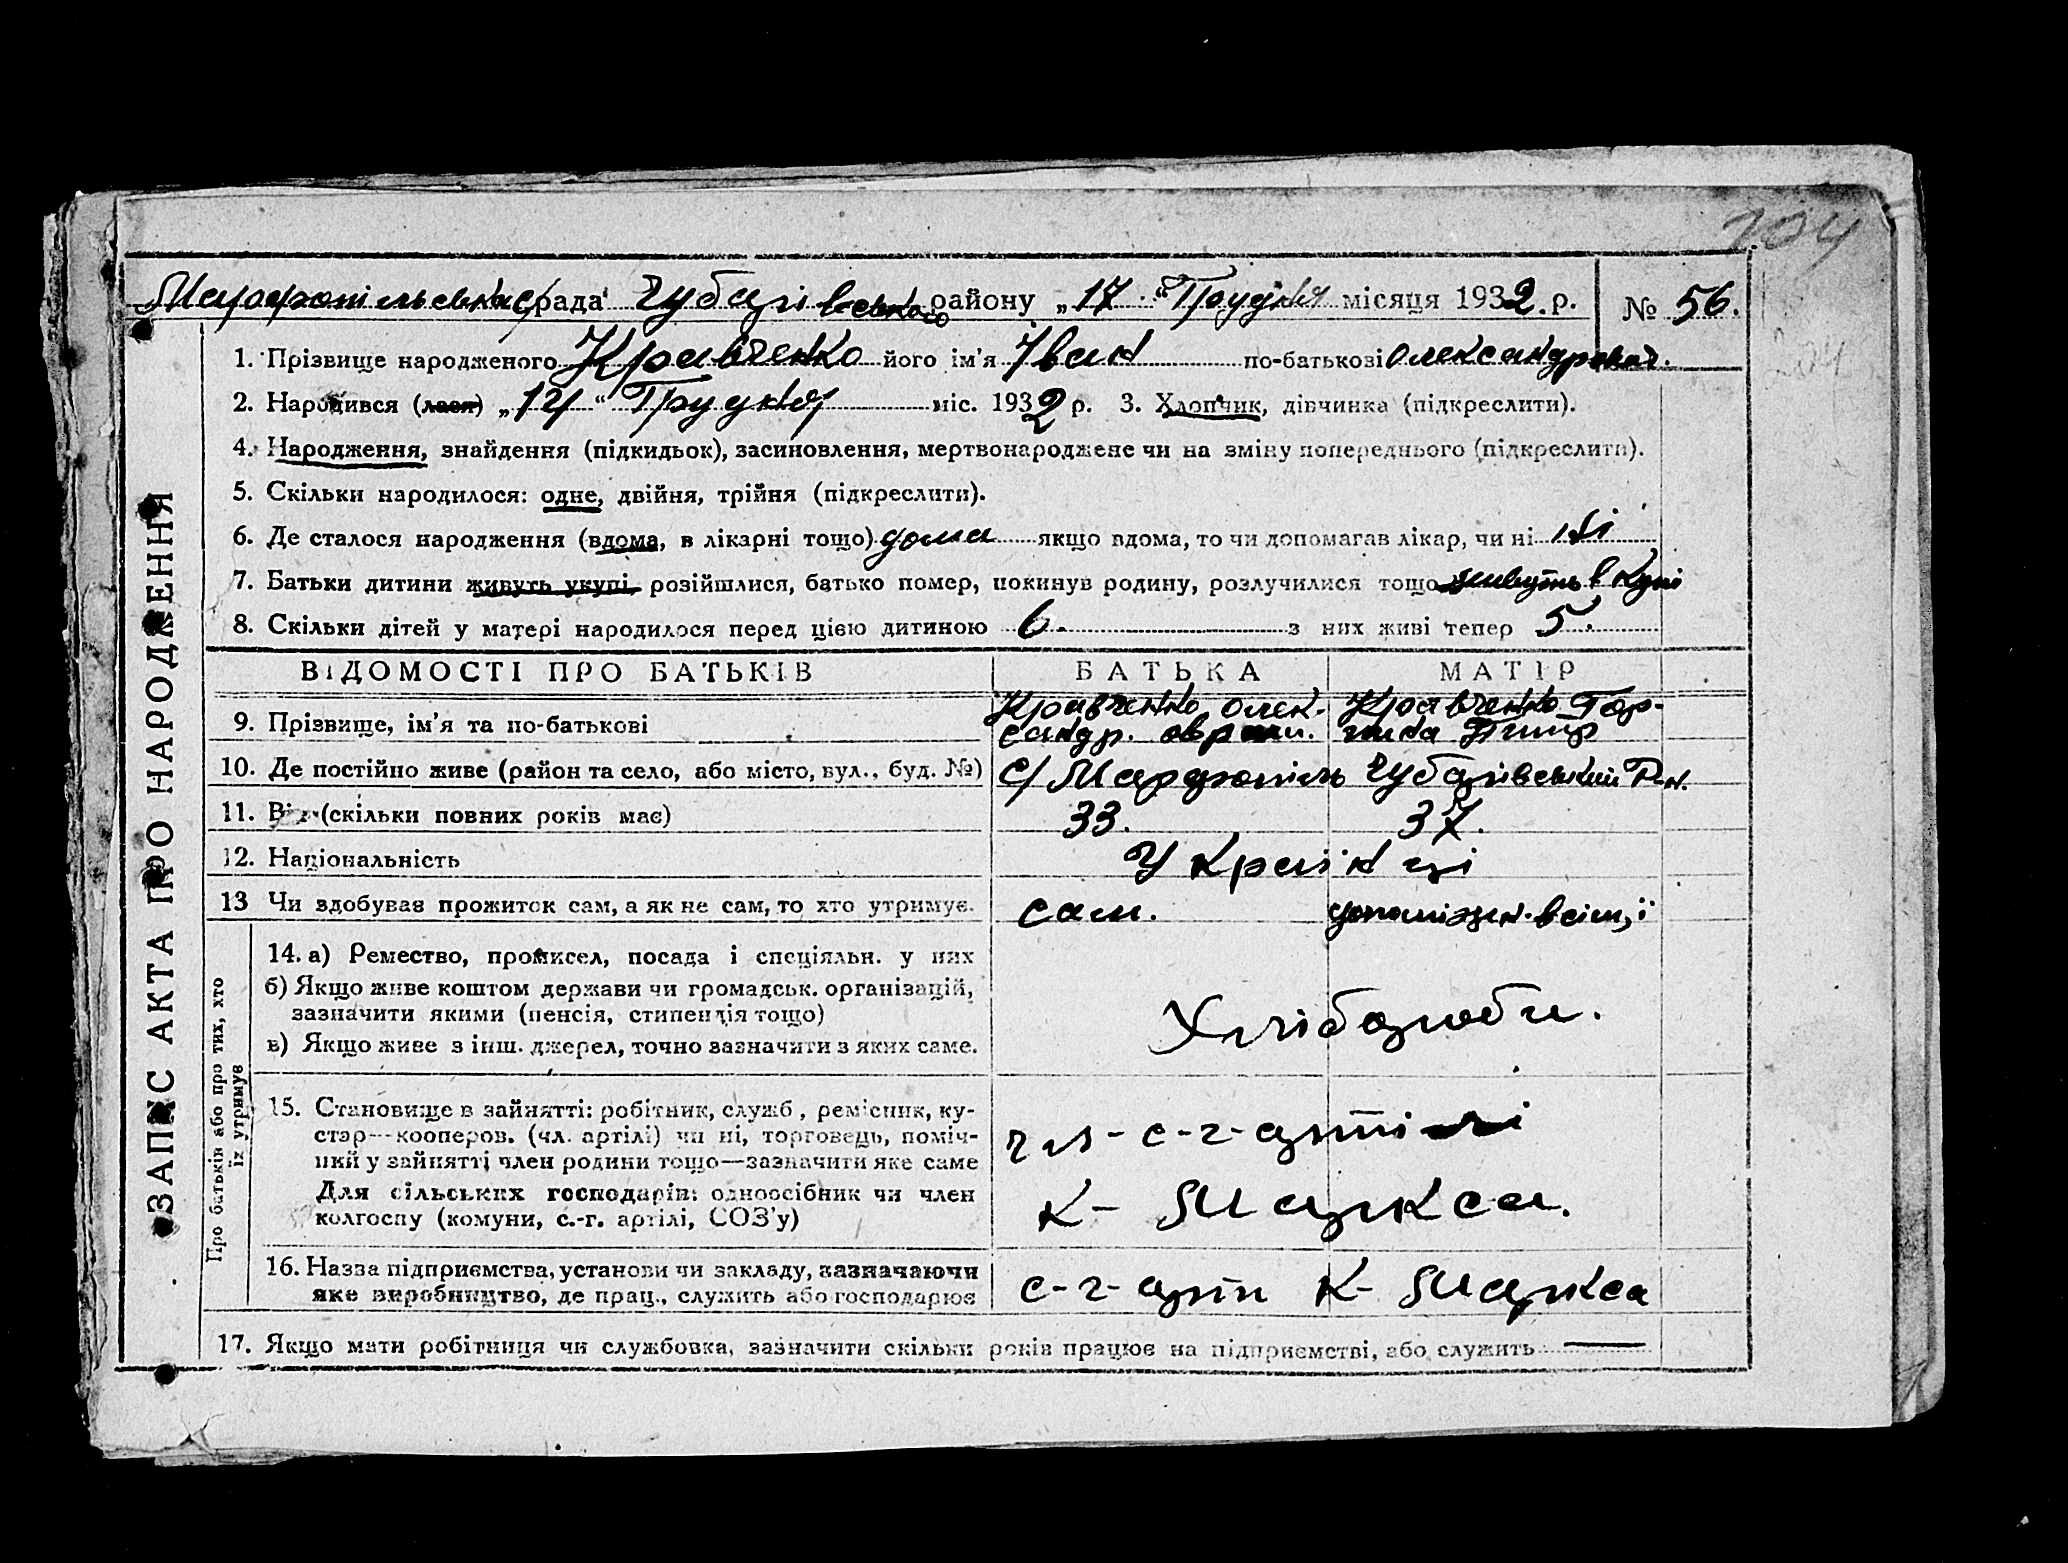 204
Марфопільська с/рада Чубарівського району „17“ Грудня місяця 1932 р. № 56.
1. Прізвище народженого Кравченко його ім'я Іван по-батькові Олександрович.
2. Народився (лася) „14“ Грудня міс. 1932 р. 3. Хлопчик, дівчинка (підкреслити).
4. Народження, знайдення (підкидьок), засиновлення, мертвонароджене чи на зміну попереднього (підкреслити).
5. Скільки народилося: одне, двійня, трійня (підкреслити).
6. Де сталося народження (вдома, в лікарні тощо) дома якщо вдома, то чи допомагав лікар, чи ні ні
7. Батьки дитини живуть укупі, розійшлися, батько помер, покинув родину, розлучилися тощо живуть в купі
8. Скільки дітей у матері народилося перед цією дитиною 6. з них живі тепер 5.
ВІДОМОСТІ ПРО БАТЬКІВ БАТЬКА МАТІР
9. Прізвище, ім'я та по-батькові Кравченко Олек- Кравченко
сандр.
10. Де постійно живе (район та село, або місто, вул., буд. №) С/ Марфопіль Чубарівський Р-н.
11. Вік (скільки повних років має) 33. 37.
12. Національність Українці
13 Чи здобував прожиток сам, а як не сам, то хто утримує. сам.
14. а) Ремество, промисел, посада і спеціяльн. у них
б) Якщо живе коштом держави чи громадськ. організацій,
зазначити якими (пенсія, стипендія тощо)
Хлібороби.
в) Якщо живе з інш. джерел, точно зазначити з яких саме.
15. Становище в зайнятті: робітник, служб, ремісник, ку-
стар—кооперов. (чл. артілі) чи ні, торговець, поміч-
ний у зайнятті член родини тощо—зазначити яке саме
чл-с-г-артілі
Для сільських господарів: одноосібник чи член
колгоспу (комуни, с.-г. артілі, СОЗ'у)
К-Маркса.
16. Назва підприємства, установи чи закладу, зазначаючи
яке виробництво, де прац., служить або господарює
с-г-арт К-Маркса
17. Якщо мати робітниця чи службовка, зазначити скільки років працює на підприємстві, або служить —
ЗАПИС АКТА ПРО НАРОДЖЕННЯ
Про батьків або про тих, хто
їх утримує